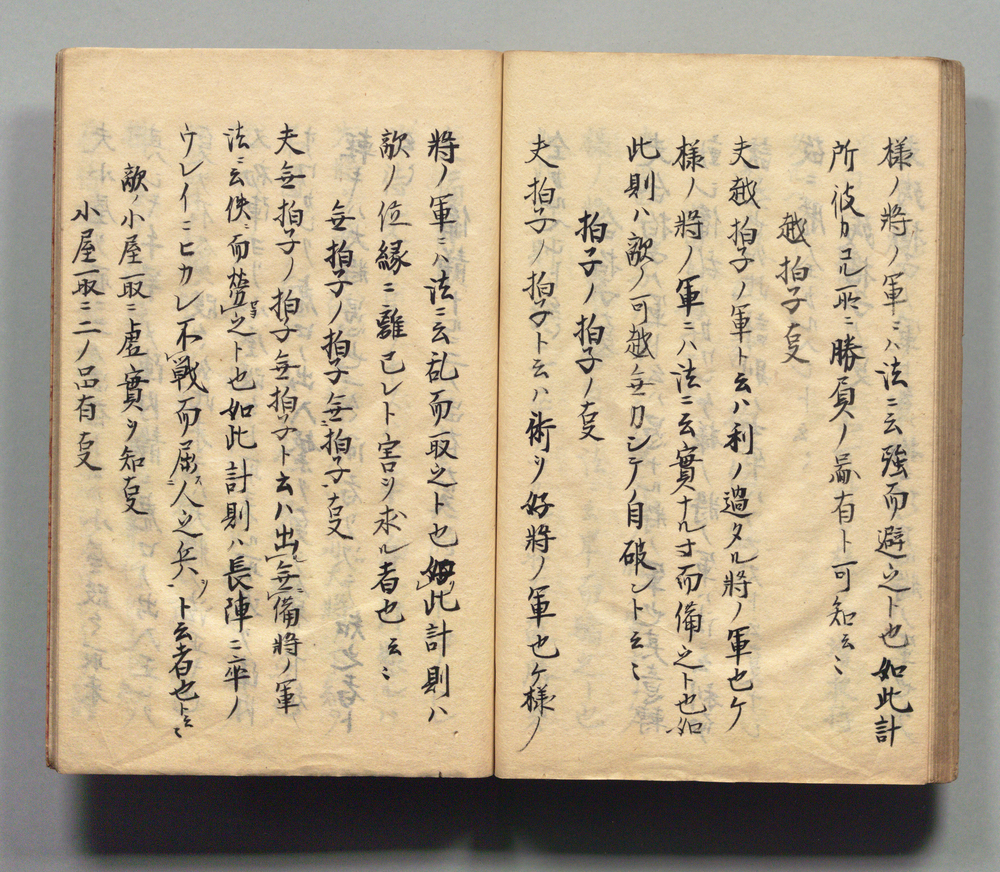 様ノ將ノ軍ニハ法ニ云強而避之ト也如此計
所彼カコレ所ニ勝負ノ品有ト可知云〻
越拍子㕝
夫越拍子ノ軍ト云ハ利ノ過タル將ノ軍也ケ
様ノ將ノ軍ニハ法ニ云實ナル寸而備之ト也如
此則ハ敵ノ可越無カシテノ自破ント云〻
拍子ノ拍子ノ㕝
夫拍子ノ拍子ト云ハ術ヲ好將ノ軍也ケ様ノ
將ノ軍ニハ法ニ云乱而取之ト也如此計則ハ
敵ノ位縁ニ離已レト害ヲ求ル者也云〻
無拍子ノ拍子無拍子㕝
夫無拍子ノ拍子無拍子ト云ハ出無備將ノ軍
法ニ云佚而勞之ト也如此計則ハ長陣ニ卒ノ
ウレイニヒカレ不戰而屈人之兵ト云者也ト云〻
敵ノ小屋取ニ虚實ヲ知㕝
小屋取ニ二ノ品有㕝